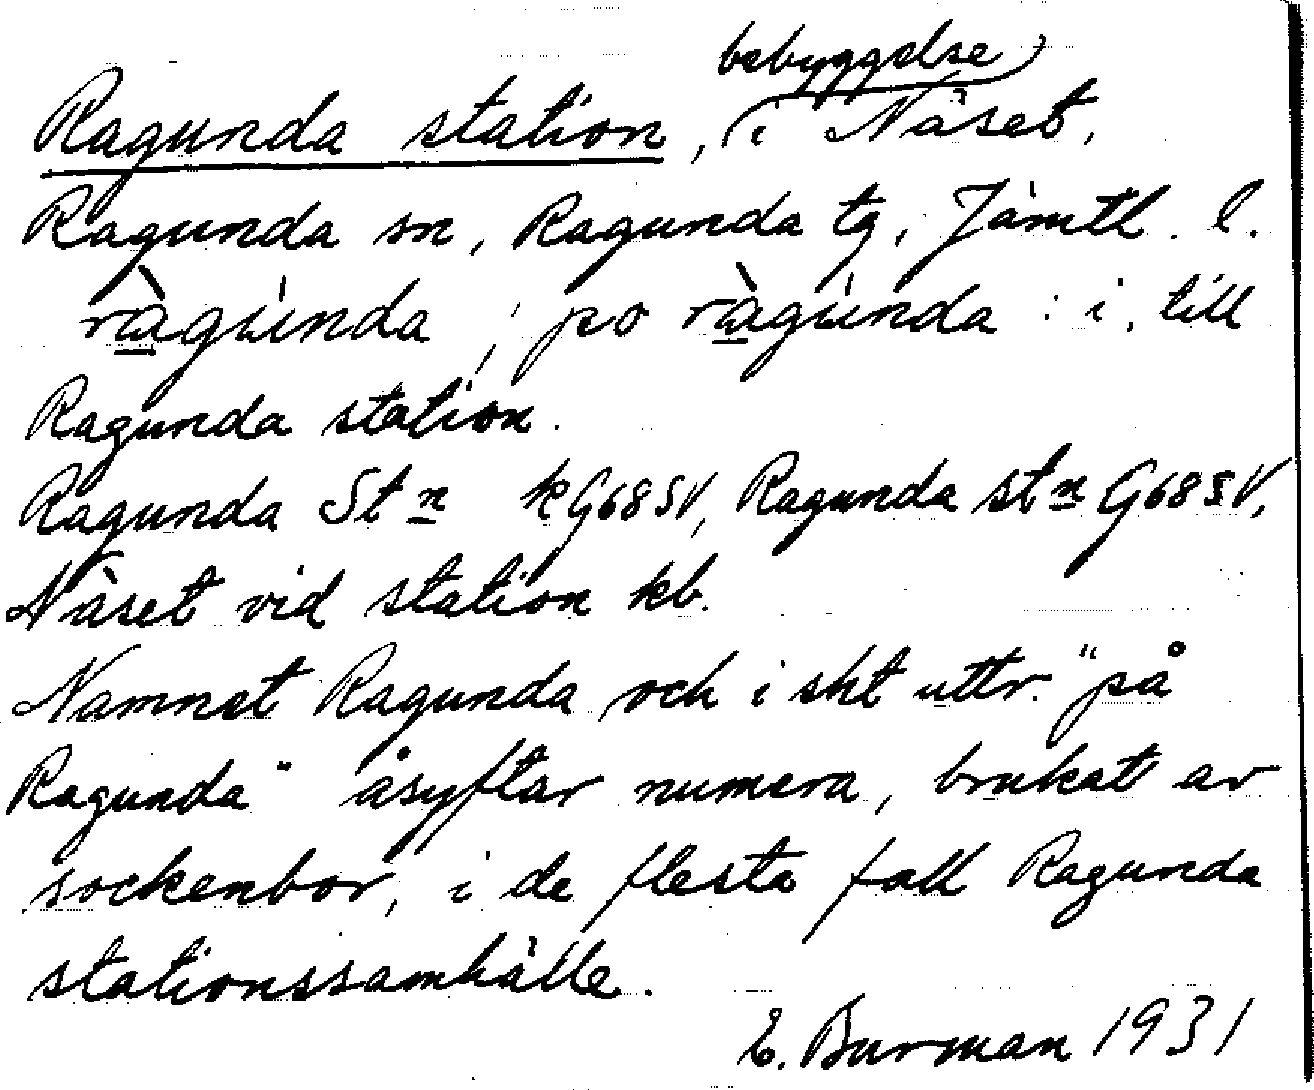 bebyggelse
Ragunda station, i Näset,
Ragunda sn, Ragunda tg, Jämtl. l.
ràgùnda ; po ràgùnda : i, till
Ragunda station.
Ragunda St n kG68SV, Ragunda st n G68SV,
Näset vid station kb.
Namnet Ragunda och i sht uttr. "på
Ragunda" åsyftar numera, brukat av
sockenbor, i de flesta fall Ragunda
stationssamhälle.
E. Burman 1931